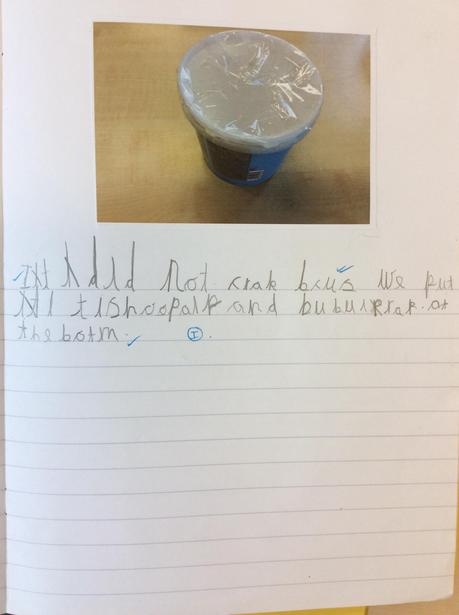 Ixt did Not crak bcus We put
tishoopalp and bubulrap. at
the botm.
I.